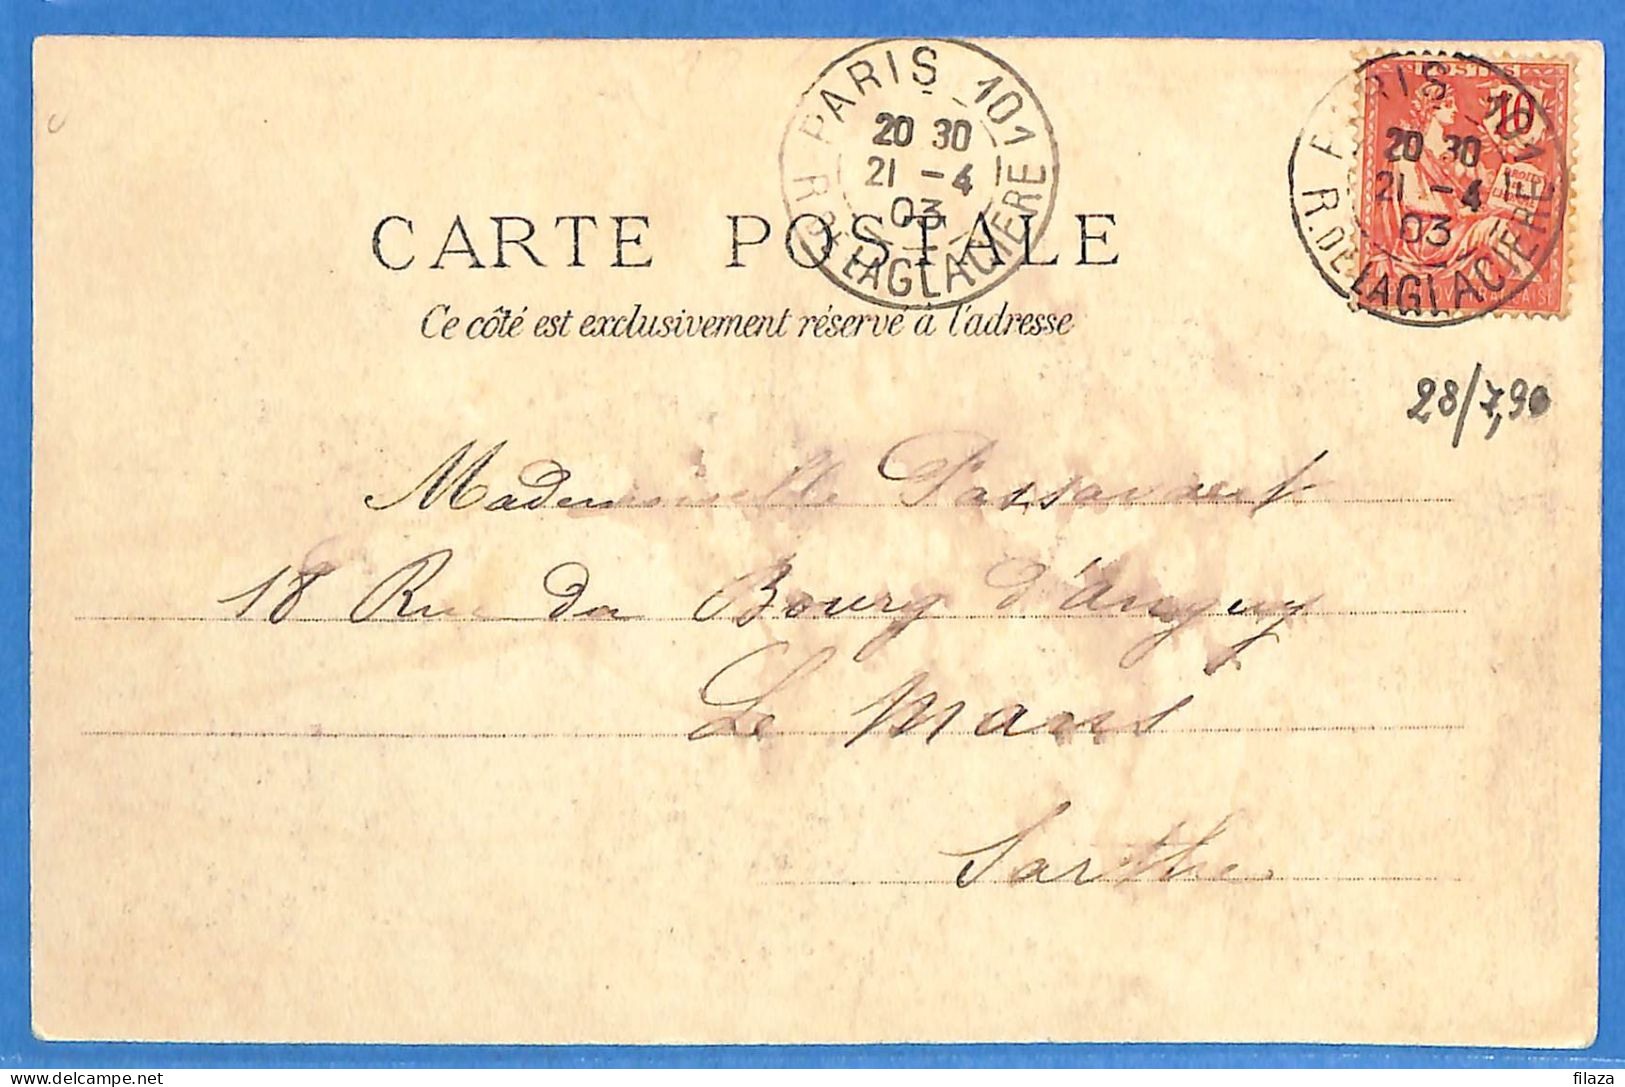 PARIS 101
20 30
21 - 4
03
R. DE LA GLACIERE
POSTES
10
PARIS 101
20 30
21 - 4
03
R. DE LA GLACIERE
CARTE POSTALE
Ce côté est exclusivement réservé à l'adresse
28/7,90
Mademoiselle Passavant
18 Rue du Bourg d'Anguy
Le Mans
Sarthe
filaza